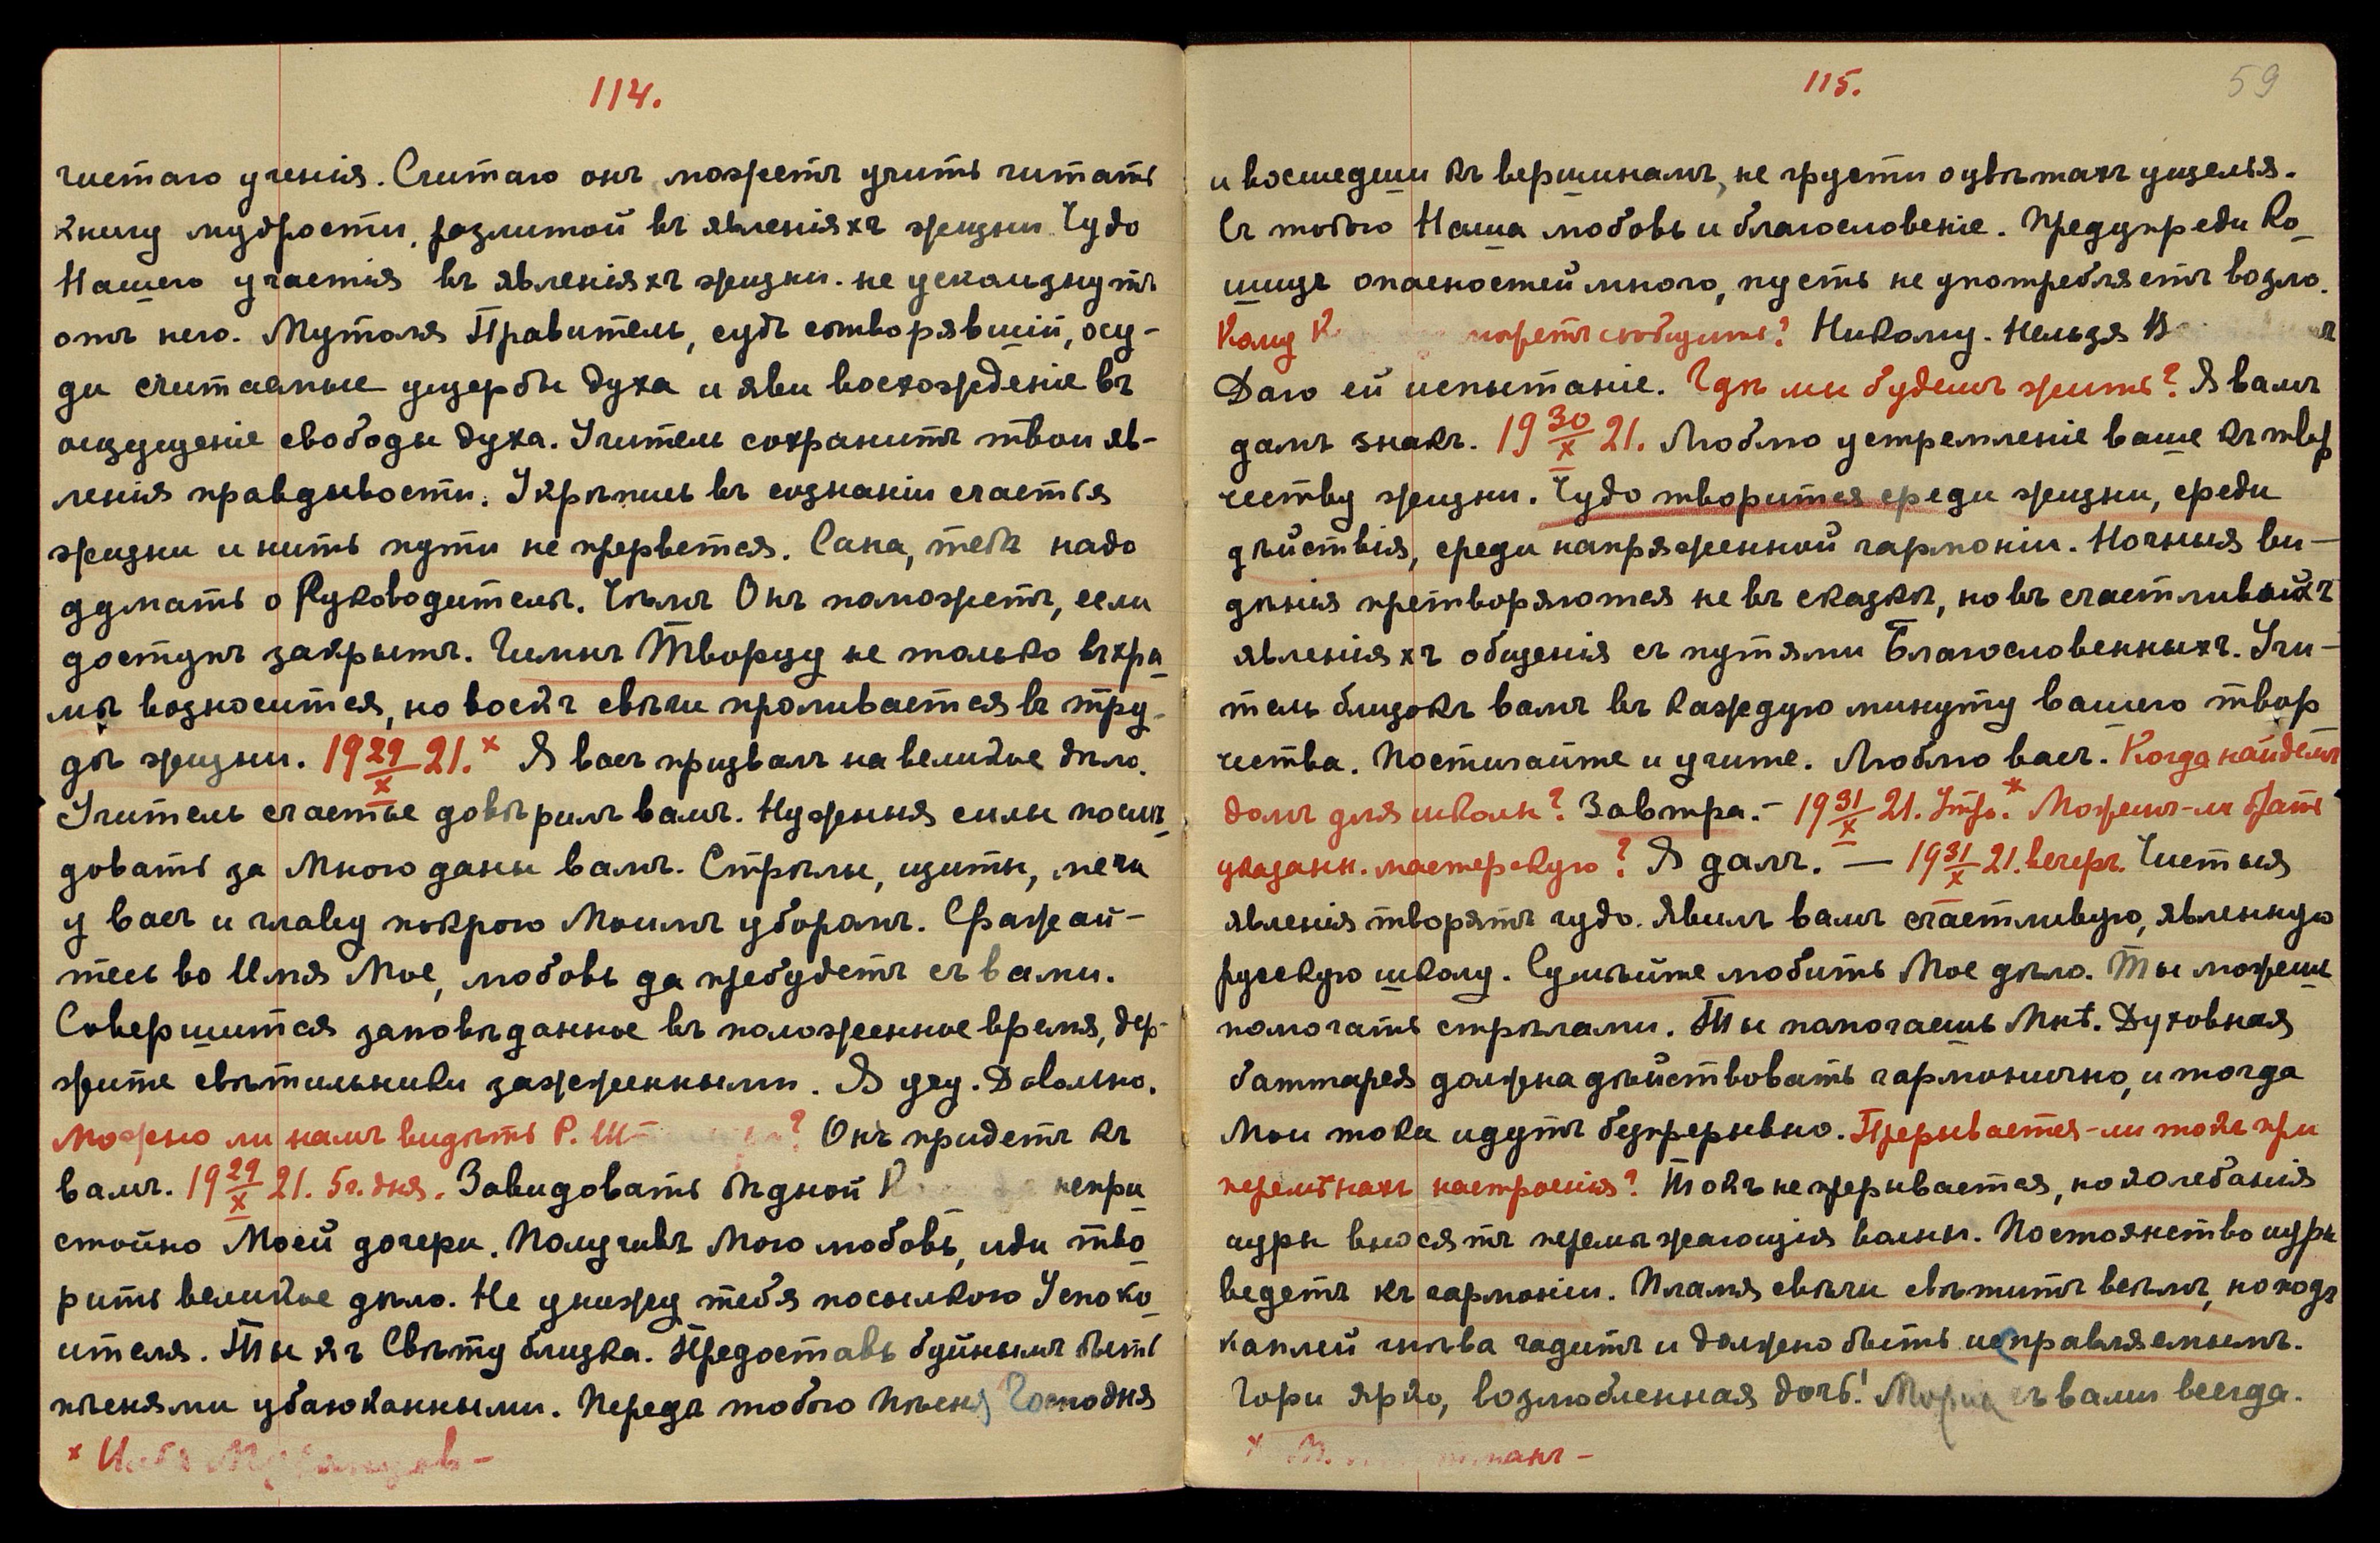 114.
чистаго ученія. Считаю онъ можетъ учить читать
книгу мудрости, разлитой въ явленіяхъ жизни. Чудо
Нашего участія въ явленіяхъ жизни не ускользнутъ
отъ него. Правитель, судъ сотворявшій, осу-
ди считаемые ущербы духа и яви восхожденіе въ
ощущеніе свободы духа. Учитель сохранитъ твои яв-
ленія правдивости. Укрѣпись въ сознаніи счастья
жизни и нить пути не прервется. Сана, тебѣ надо
думать о Руководителѣ. Чѣмъ Онъ поможетъ, если
доступъ закрытъ. Гимнъ Творцу не только въ хра-
мѣ возносится, но воскъ свѣчи проливается въ тру-
дѣ жизни. 19 29/X 21.* Я васъ призвалъ на великое дѣло.
Учитель счастье довѣрилъ вамъ. Нужныя силы послѣ-
довать за Мною даны вамъ. Стрѣлы, щиты, мечи
у васъ и главу покрою Моимъ уборомъ. Сражай-
тесь во Имя Мое, любовь да пребудетъ съ вами.
Совершится заповѣданное въ положенное время, дер-
жите свѣтильники зажженными. Я иду. Довольно.
Можно ли намъ видѣть Р. Ш ? Онъ придетъ къ
вамъ. 19 29/X 21. 5 ч. дня. Завидовать бѣдной К непри-
стойно Моей дочери. Получивъ Мою любовь, иди тво-
рить великое дѣло. Не унижу тебя посылкою Успоко-
ителя. Ты къ Свѣту близка. Предоставь буйнымъ быть
пѣснями убаюканными. Передъ тобою пѣсня Господня
*
115.
59
и восшедши къ вершинамъ, не грусти о цвѣтахъ ущелья.
Съ тобою Наша любовь и благословеніе. Предупреди Ко-
шицъ опасностей много, пусть не употребляетъ во зло.
Кому К можетъ сообщить? Никому. Нельзя
Даю ей испытаніе. Гдѣ мы будемъ жить? Я вамъ
дамъ знакъ. 19 30/X 21. Люблю устремленіе ваше къ твор
честву жизни. Чудо творится среди жизни, среди
дѣйствія, среди напряженной гармоніи. Ночныя ви-
дѣнія претворяются не въ сказкѣ, но въ счастливыхъ
явленіяхъ общенія съ путями Благословенныхъ. Учи-
тель близокъ вамъ въ каждую минуту вашего твор
чества. Постигайте и учите. Люблю васъ. Когда найдемъ
домъ для школы? Завтра. - 19 31/X 21. Утр.* Можемъ-ли брать
указанн. мастерскую? Я далъ. — 19 31/X 21. вечеръ. Чистыя
явленія творятъ чудо. Явилъ вамъ счастливую, явленную
русскую школу. Сумѣйте любить Мое дѣло. Ты можешь
помогать стрѣлами. Ты помогаешь Мнѣ. Духовная
баттарея должна дѣйствовать гармонично, и тогда
Мои токи идутъ безпрерывно. Прерывается-ли токъ при
перемѣнахъ настроенія? Токъ не прерывается, но колебанія
ауры вносятъ перемежающія волны. Постоянство ауры
ведетъ къ гармоніи. Пламя свѣчи свѣтитъ всѣмъ, но подъ
каплей гнѣва чадитъ и должно быть исправляемымъ.
Гори ярко, возлюбленная дочь! Мориа съ вами всегда.
*